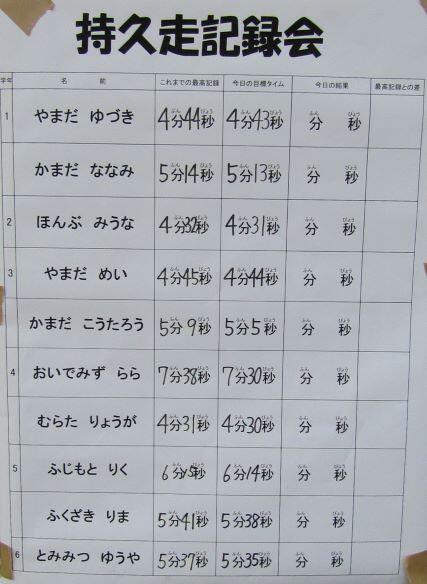 持久走記録会
学年 名 前 これまでの最高記録 今日の目標タイム 今日の結果 最高記録との差
1 やまだ ゆづき 4分44秒 4分43秒 分 秒
かまだ ななみ 5分14秒 5分13秒 分 秒
2 ほんぶ みうな 4分32秒 4分31秒 分 秒
3 やまだ めい 4分45秒 4分44秒 分 秒
かまだ こうたろう 5分9秒 5分5秒 分 秒
4 おいでみず らら 7分38秒 7分30秒 分 秒
むらた りょうが 4分31秒 4分30秒 分 秒
5 ふじもと りく 6分15秒 6分14秒 分 秒
ふくざき りま 5分41秒 5分38秒 分 秒
6 とみみつ ゆうや 5分37秒 5分35秒 分 秒